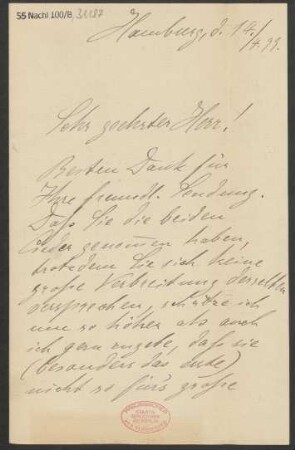 55 Nachl 100/B,
Hamburg, d. 14./
4.99.
Sehr geehrter Herr!
Besten Dank für
Ihre freundl. Sendung.
Daß Sie die beiden
Lieder genommen haben,
trotzdem Sie sich keine
große Verbreitung derselben
versprechen, schätze ich
um so höher als auch
ich gern zugebe, daß sie
(besonders das erste)
nicht so für's große